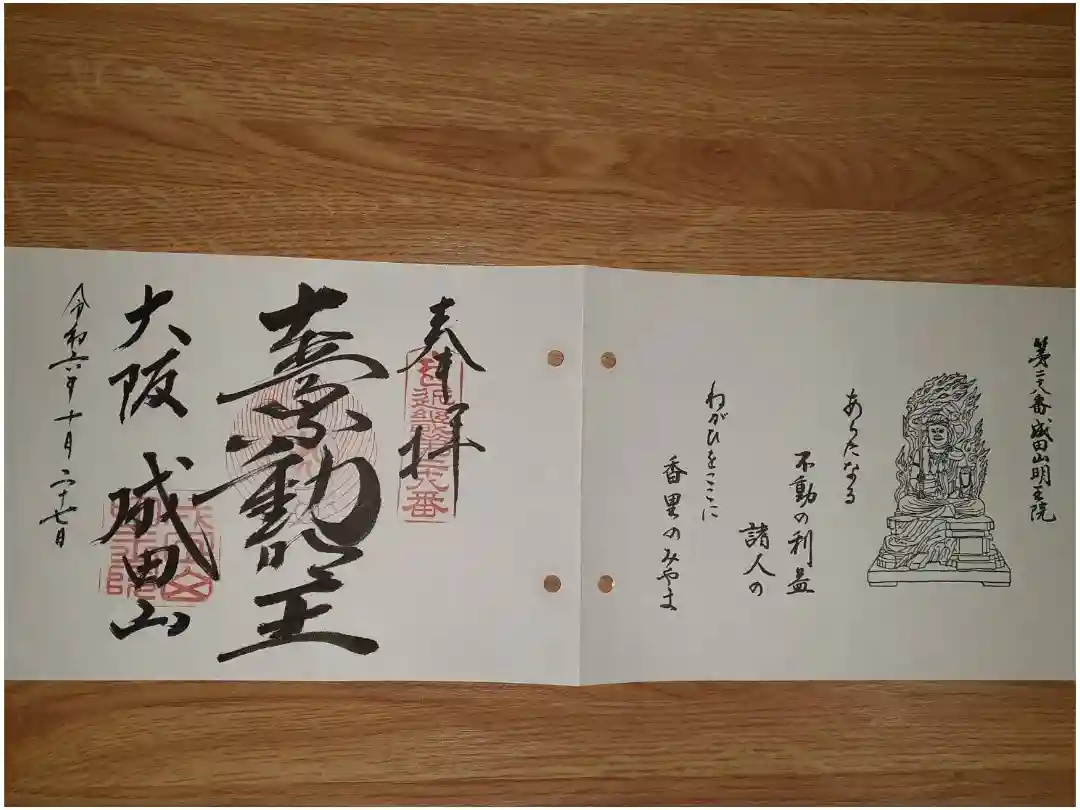 第二八番成田山明王院
あらたなる
不動の利益
諸人の
ねがひをここに
香里のみやま
奉拝
不動明王
大阪 成田山
令和六年十月二十七日
成田山
明王院